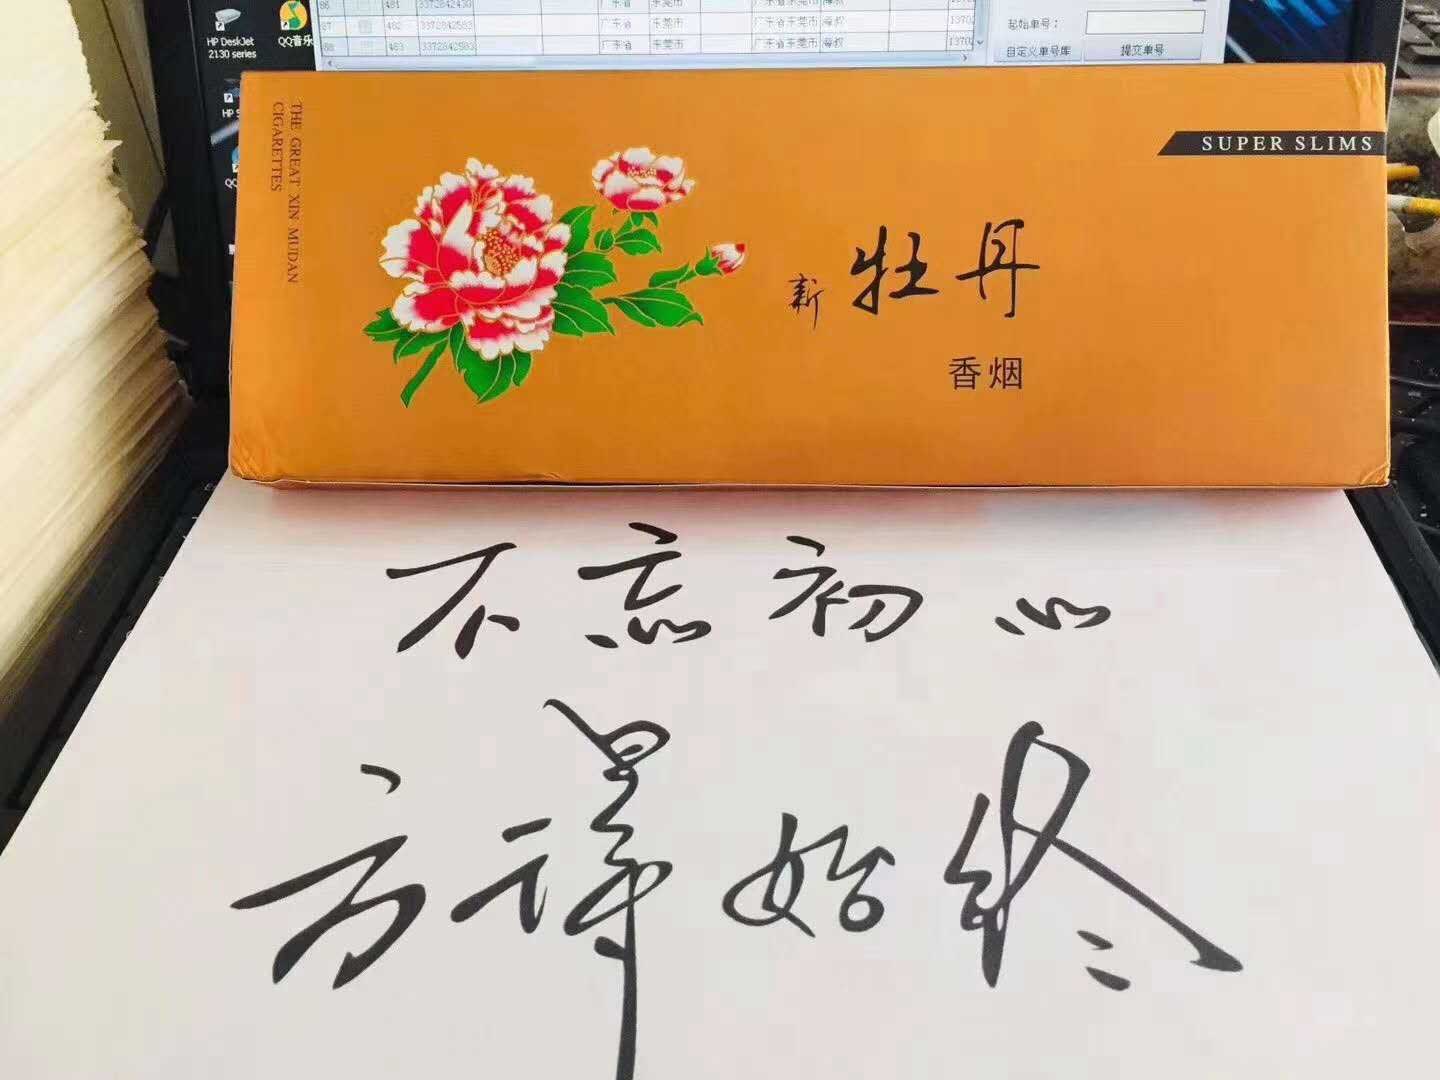 86 481 3372842430 广东省 东莞市 广东省东莞市 海权 1370
87 482 3372842583 广东省 东莞市 广东省东莞市 海权 1370
88 483 3372842583 广东省 东莞市 广东省东莞市 海权 1370
起始单号：
自定义单号库 提交单号
HP DeskJet
2130 series
QQ音乐
THE GREAT XIN MUDAN
CIGARETTES
SUPER SLIMS
新 牡丹
香烟
不忘初心
方得始终